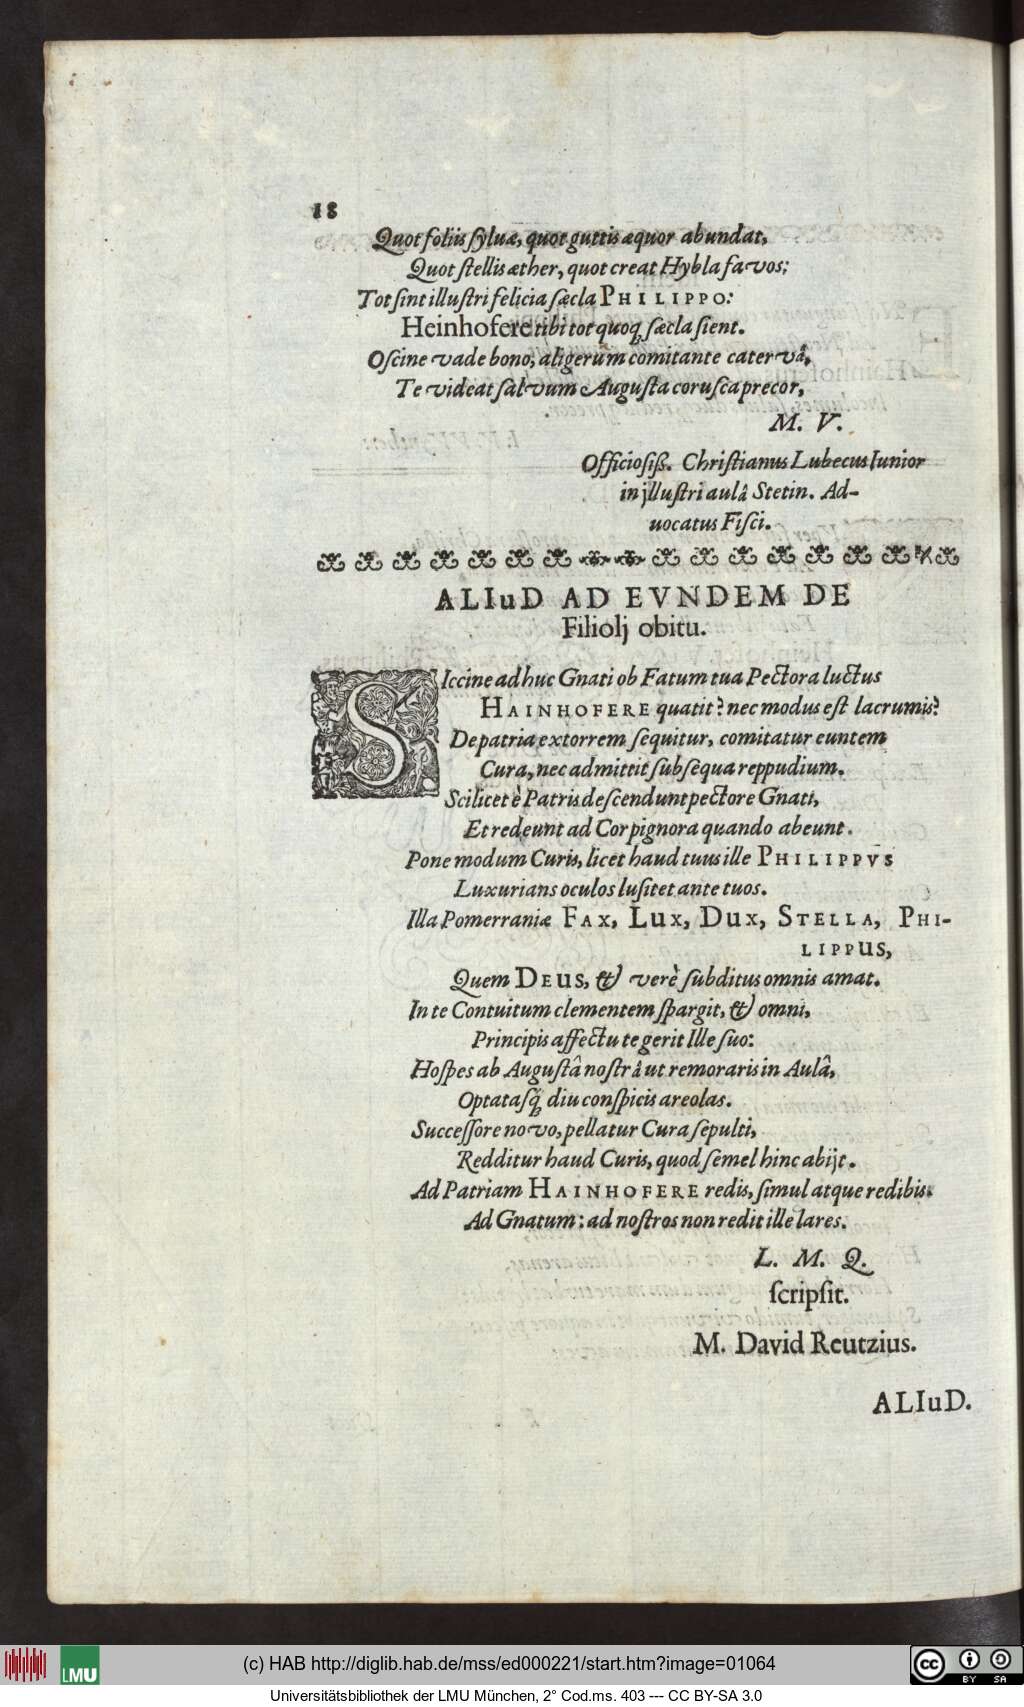 18
Quot foliis ſylvæ, quot guttis æquor abundat,
Quot ſtellis æther, quot creat Hybla favos;
Tot ſint illuſtri felicia ſæcla PHILIPPO:
Heinhofere tibi tot quoq́ ſæcla ſient.
Oſcine vade bono, aligerûm comitante catervâ,
Te videat ſalvum Auguſta coruſca precor,
M. V.
Officioſiß. Chriſtianus Lubecus Iunior
in jlluſtri aulâ Stetin. Ad-
uocatus Fiſci.
ALIuD AD EVNDEM DE
Filiolj obitu.
SIccine ad huc Gnati ob Fatum tua Pectora luctus
HAINHOFERE quatit? nec modus eſt lacrumis?
De patria extorrem ſequitur, comitatur euntem
Cura, nec admittit ſubſequa reppudium.
Scilicet è Patris deſcendunt pectore Gnati,
Et redeunt ad Cor pignora quando abeunt.
Pone modum Curis, licet haud tuus ille PHILIPPVS
Luxurians oculos luſitet ante tuos.
Illa Pomerraniæ FAX, LUX, DUX, STELLA, PHI-
LIPPUS,
Quem DEUS, & verè ſubditus omnis amat.
In te Contuitum clementem ſpargit, & omni,
Principis affectu te gerit Ille ſuo:
Hoſpes ab Auguſtâ noſtrâ ut remoraris in Aulâ,
Optataſq́ diu conſpicis areolas.
Succeſſore novo, pellatur Cura ſepulti,
Redditur haud Curis, quod ſemel hinc abijt.
Ad Patriam HAINHOFERE redis, ſimul atque redibis.
Ad Gnatum: ad noſtros non redit ille lares.
L. M. Q.
ſcripſit.
M. David Reutzius.
ALIuD.
LMU
(c) HAB http://diglib.hab.de/mss/ed000221/start.htm?image=01064
cc BY SA
Universitätsbibliothek der LMU München, 2° Cod.ms. 403 --- CC BY-SA 3.0